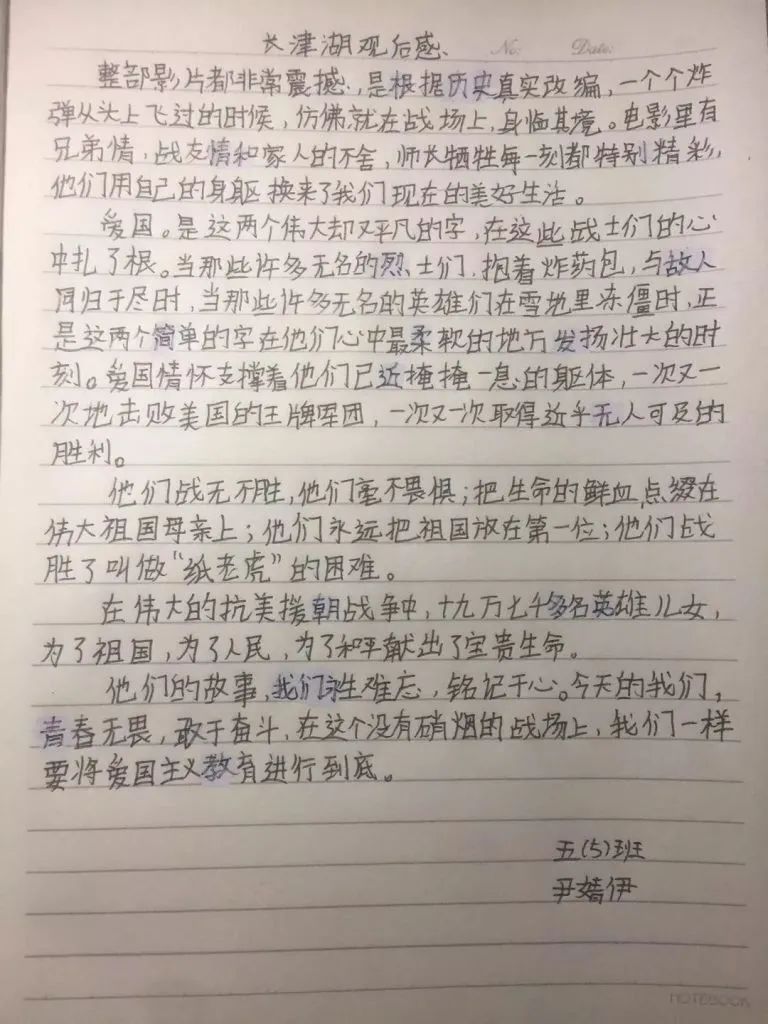 长津湖观后感、 No: Date:
整部影片都非常震撼,是根据历史真实改编,一个个炸
弹从头上飞过的时候,仿佛就在战场上,身临其境。电影里有
兄弟情,战友情和家人的不舍,师长牺牲每一刻都特别精彩,
他们用自己的身躯换来了我们现在的美好生活。
爱国。是这两个伟大却又平凡的字,在这些战士们的心
中扎了根。当那些许多无名的烈士们,抱着炸药包,与故人
同归于尽时,当那些许多无名的英雄们在雪地里冻僵时,正
是这两个简单的字在他们心中最柔软的地方发扬壮大的时
刻。爱国情怀支撑着他们已近掩掩一息的躯体,一次又一
次地击败美国的王牌军团,一次又一次取得近乎无人可及的
胜利。
他们战无不胜,他们毫不畏惧;把生命的鲜血点缀在
伟大祖国母亲上;他们永远把祖国放在第一位;他们战
胜了叫做“纸老虎”的困难。
在伟大的抗美援朝战争中,十九万七千多名英雄儿女,
为了祖国,为了人民,为了和平献出了宝贵生命。
他们的故事,我们永生难忘,铭记于心。今天的我们,
青春无畏,敢于奋斗,在这个没有硝烟的战场上,我们一样
要将爱国主义教育进行到底。
五(5)班
尹嫱伊
NOTEBOOK